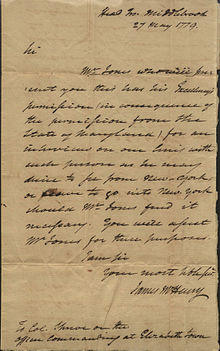 Head Qrs. Middlebrook
27 May 1779.
Sir
Mr. Jones who will pre-
sent you this has his Excellency's
permission (in consequence of
the permission from the
State of Maryland) for an
interview on our lines with
such person as he may
desire to see from New-York
or to go into New York
should Mr. Jones find it
necessary. You will assist
Mr. Jones for these purposes.
I am Sir
Your most obt. Ser.
James McHenry
To Col. Shreve or the
officer commanding at Elizabeth Town